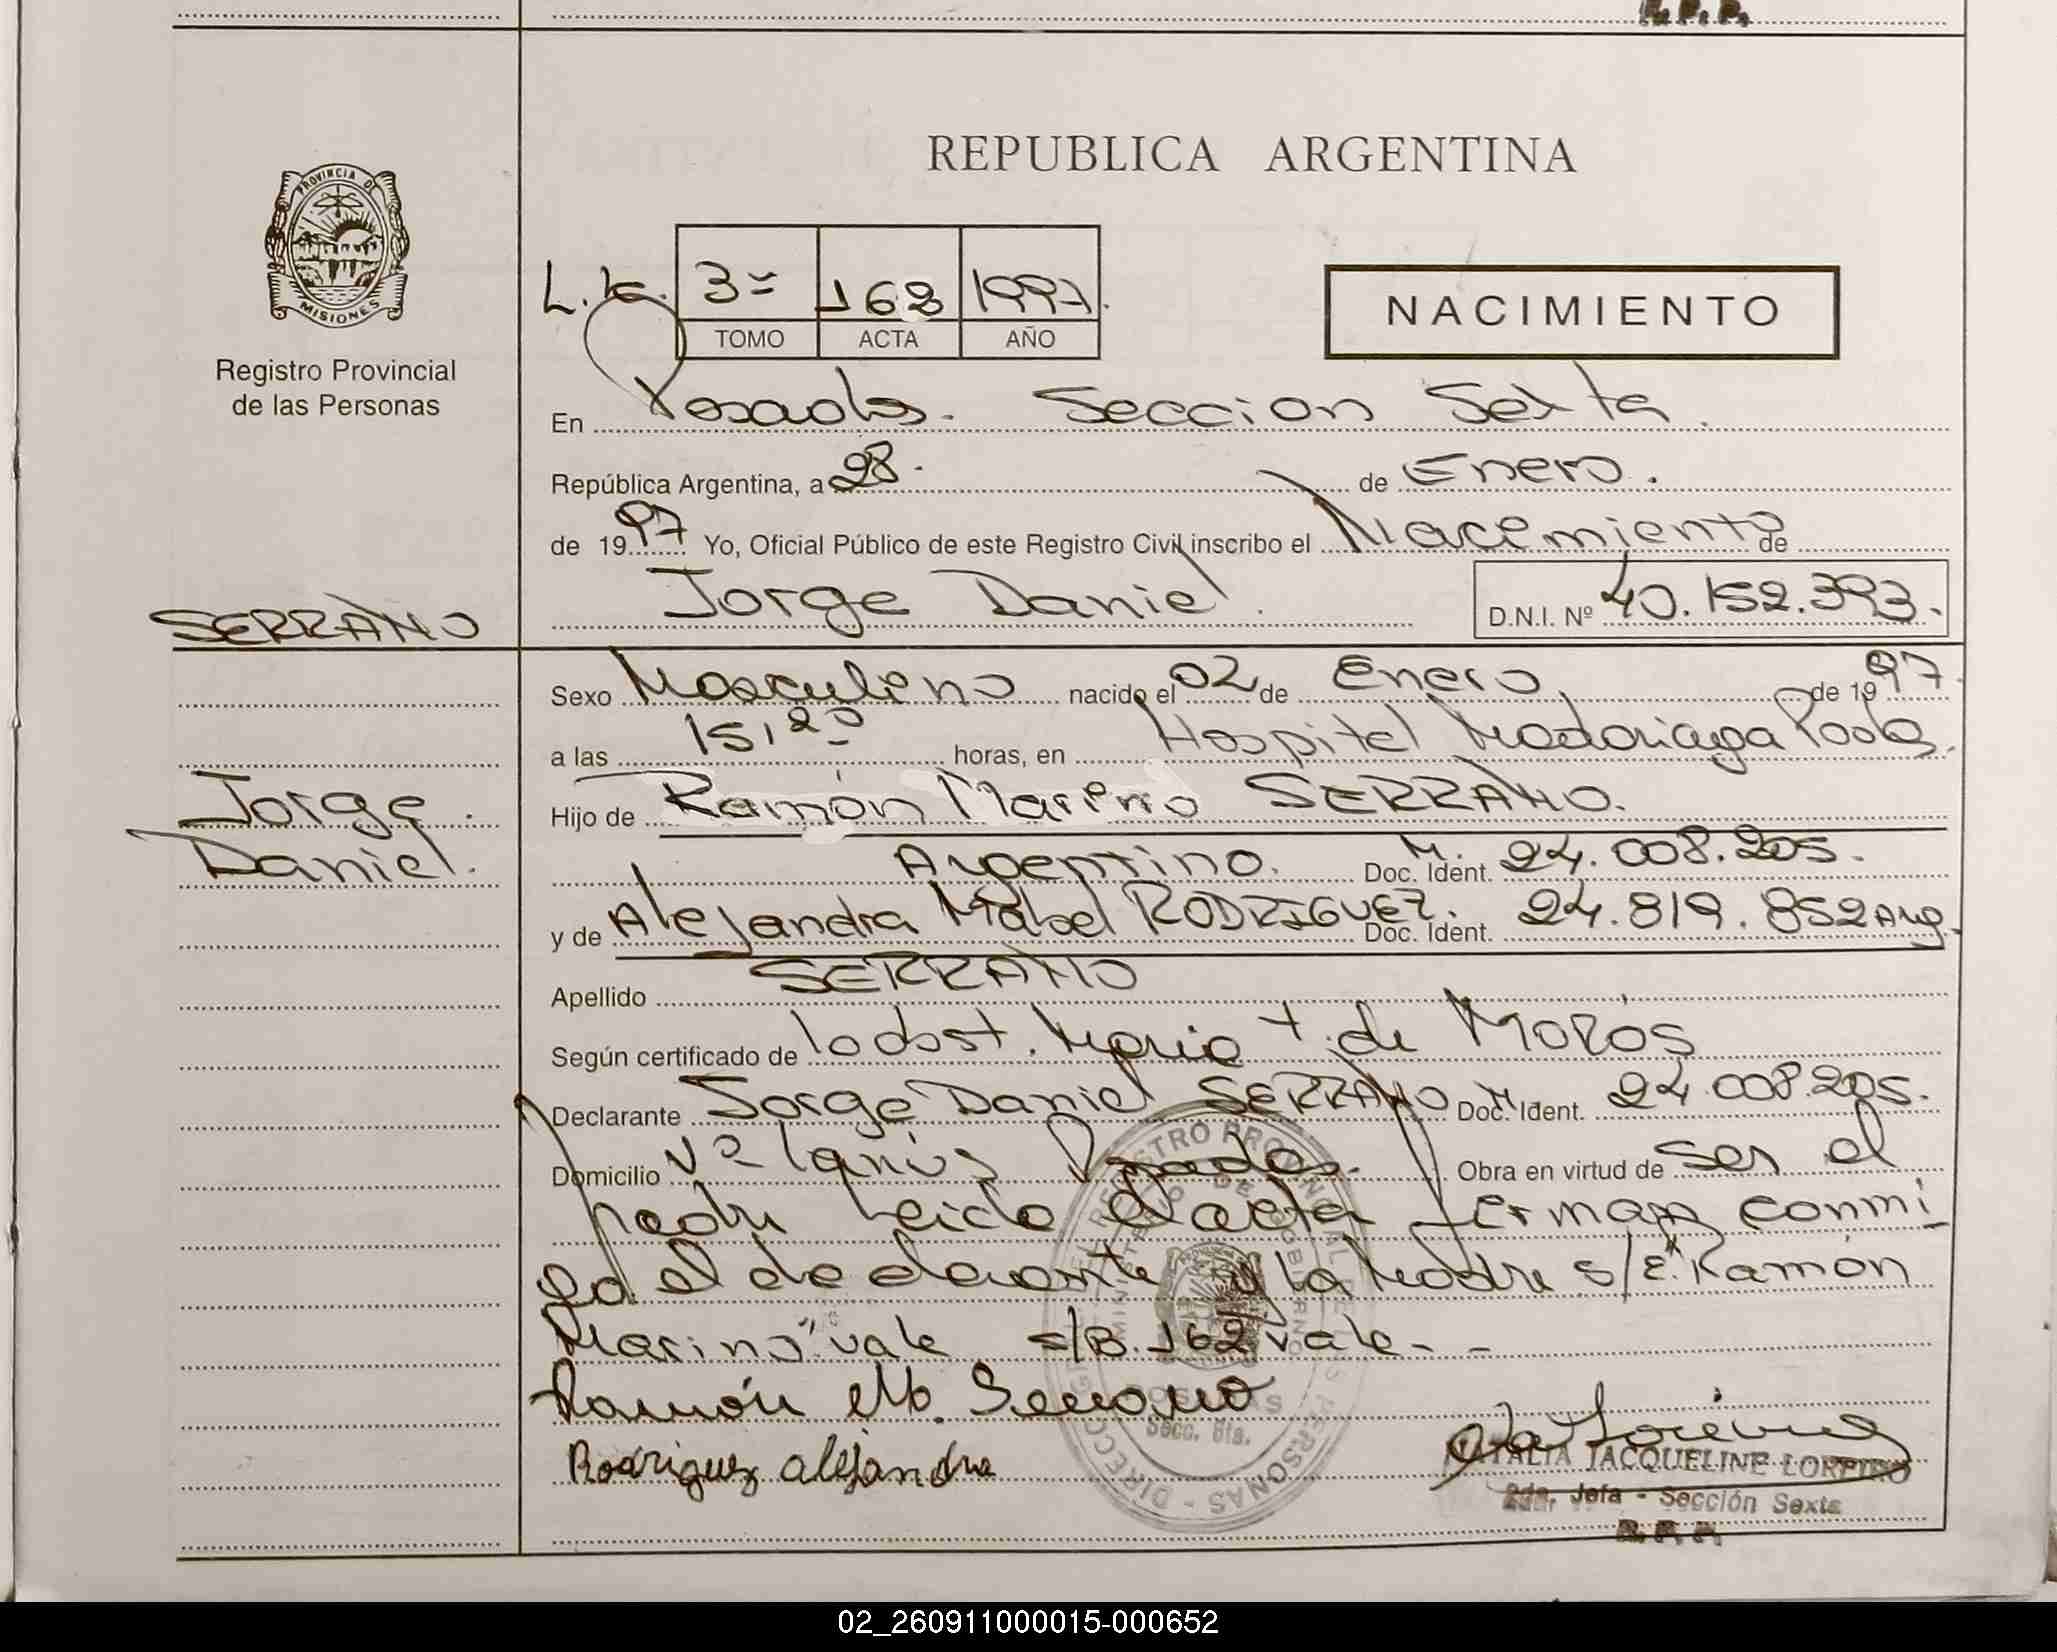 R. P. P.
REPUBLICA ARGENTINA
PROVINCIA DE
MISIONES
Registro Provincial
de las Personas
3º 162 1997.
TOMO ACTA AÑO
NACIMIENTO
En Posadas. Seccion Sexta.
República Argentina, a 28. de Enero.
de 1997 Yo, Oficial Público de este Registro Civil inscribo el Nacimiento de
Jorge Daniel. D.N.I. Nº 40.152.393.
SERRANO
Sexo Masculino nacido el 02 de Enero, de 1997.
a las 15,20 horas, en Hospital Madariaga Pdas.
Hijo de Ramón Marino SERRANO.
Jorge.
Daniel.
Argentino. Doc. Ident. M. 24.008.205.
y de Alejandra Mabel RODRIGUEZ. Doc. Ident. 24.819.852 Arg.
Apellido SERRANO
Según certificado de Maria T. de Moros
Declarante Jorge Daniel SERRANO Doc. Ident. M. 24.008.205.
Domicilio Vº Lanús Posadas. Obra en virtud de ser el
padre Leido el acta ferman conmi
go el declarante y la Madre s/E. "Ramón
Marino" vale s/B. 162 vale. -
Ramón M. Serrano
Rodriguez alejandra
DIRECCION GENERAL REGISTRO PROVINCIAL DE LAS PERSONAS
MINISTERIO DE GOBIERNO
POSADAS
Secc. 6ta.
NATALIA JACQUELINE LOREIRO
2da. Jefa - Sección Sexta
R. P. P.
02_260911000015-000652